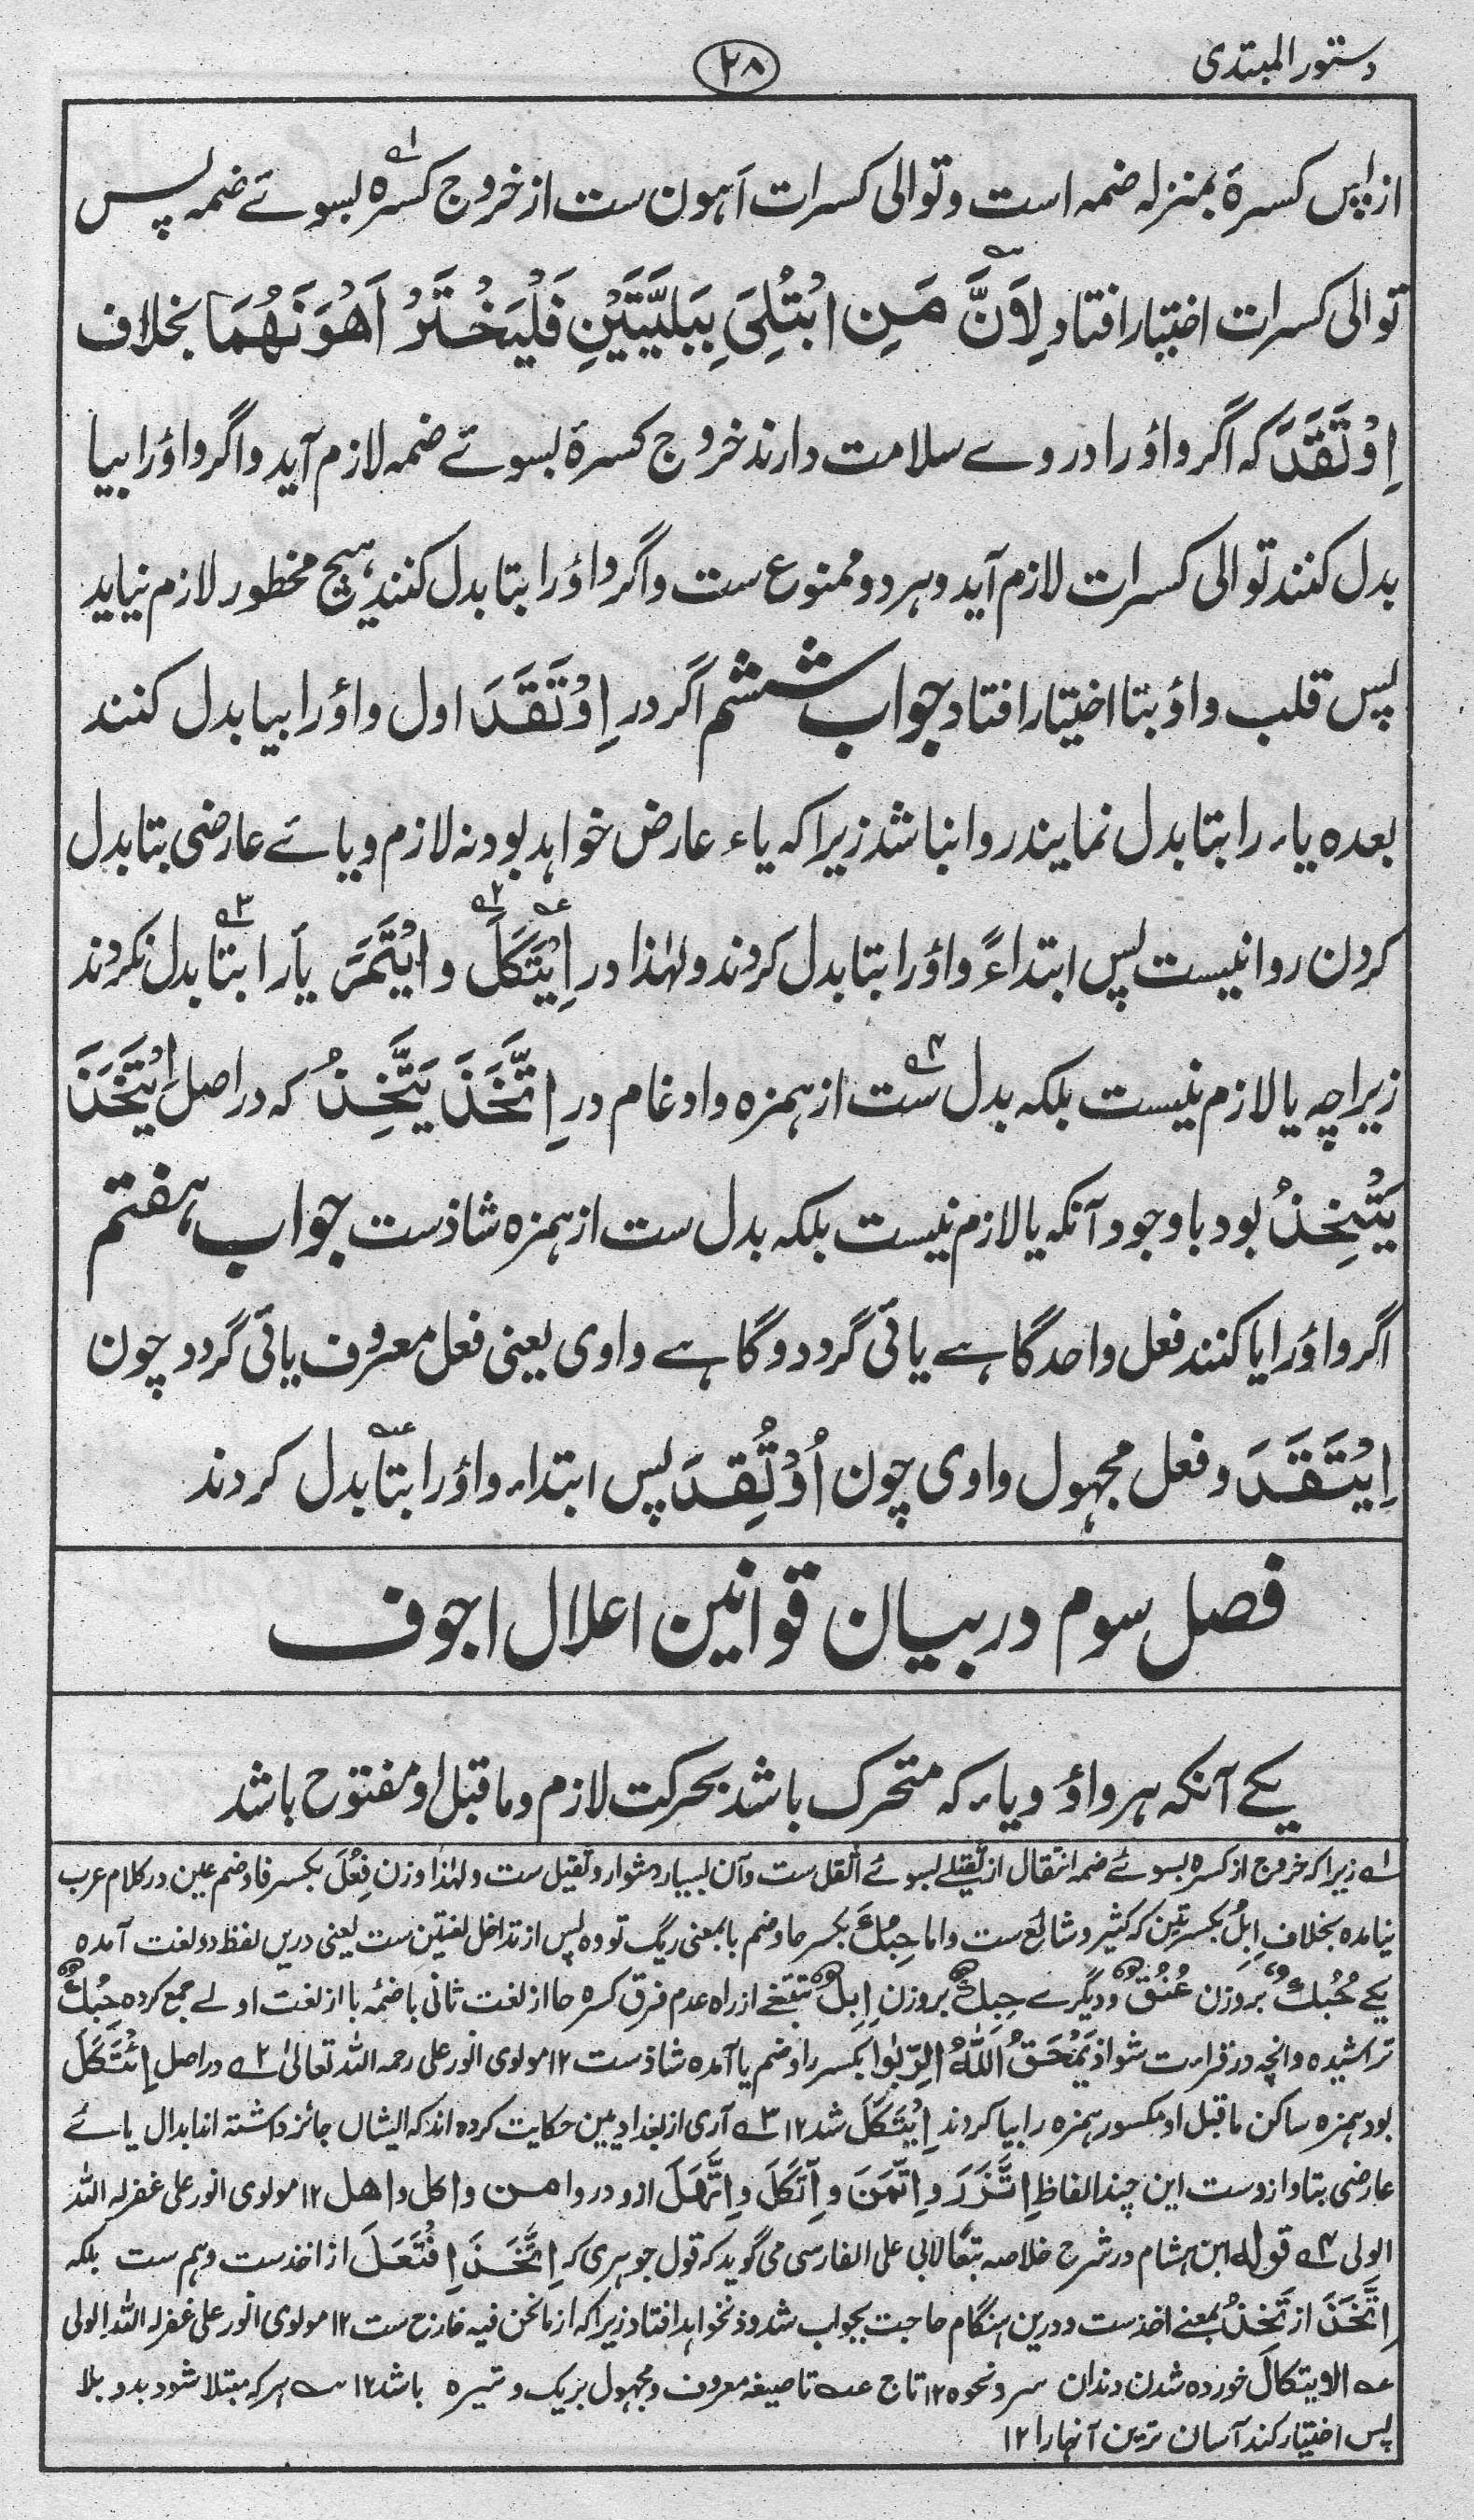 دستور المبتدی
۲۸
ازاں پس کسرۃ بمنزلہ ضمہ است و توالی کسرات اَہون ست از خروج کسرہ لبسوئے ضمہ پس
توالی کسرات اختیار افتاد لِاَنَّ مَنِ ابْتُلِیَ بِبَلِیَّتَیْنِ فَلْیَخْتَرْ اَھْوَنَھُمَا بخلاف
اِوْتَقَدَ کہ اگر واؤ را در وے سلامت دارند خروج کسرۃ بسوئے ضمہ لازم آید و اگر واؤ را بیا
بدل کنند توالی کسرات لازم آید و ہر دو ممنوع ست و اگر واؤ را بتا بدل کنند ہیچ محظور لازم نیاید
پس قلب واؤ بتا اختیار افتاد جواب ششم اگر در اِوْتَقَدَ اول واؤ را بیا بدل کنند
بعدہ یاء را بتا بدل نمایند روا نباشد زیرا کہ یاء عارض خواہد بود نہ لازم و یائے عارضی بتا بدل
کردن روا نیست پس ابتداءً واؤ را بتا بدل کردند و لہٰذا در اِیْتَکَلَ و ایْتَمَرَ یاء را بتا بدل نکردند
زیرا چہ یا لازم نیست بلکہ بدل ست از ہمزہ و ادغام در اِتَّخَذَ یَتَّخِذُ کہ در اصل اِیْتَخَذَ
یَیْتَخِذُ بود با وجود آنکہ یا لازم نیست بلکہ بدل ست از ہمزہ شاذست جواب ہفتم
اگر واؤ را یا کنند فعل واحد گاہے یائی گردد و گاہے واوی یعنی فعل معروف یائی گردد چون
اِیْتَقَدَ و فعل مجہول واوی چون اُوْتُقِدَ پس ابتداء واؤ را بتا بدل کردند
فصل سوم در بیان قوانین اعلال اجوف
یکے آنکہ ہر واؤ و یاء کہ متحرک باشد بحرکت لازم و ما قبل او مفتوح باشد
۱ زیرا کہ خروج از کسرہ بسوئے ضمہ انتقال از ثقیلے بسوئے اثقل ست و آن بسیار دشوار و ثقیل ست و لہٰذا وزن فِعُلَ بکسر فا و ضم عین در کلام عرب
نیامدہ بخلاف اِبِلُ بکسرتین کہ کثیر و شائع ست و اما حِبُكَ بکسر حا و ضم با بمعنی ریگ تودہ پس از تداخل لغتین ست یعنی دریں لفظ دو لغت آمدہ
یکے حُبُكٌ بروزن عُنُقٌ و دیگرے حِبِكٌ بروزن اِبِلٌ از راہ عدم فرق کسرہ حا از لغت ثانی با ضمّہ با از لغت اولے جمع کردہ حِبُكٌ
تراشیدہ و انچہ در قراءت شواذ یَمْحَقُ اللّٰہُ الرِّبُوا بکسر را و ضم با آمدہ شاذست ۱۲ مولوی انور علی رحمہ اللہ تعالیٰ ۲ در اصل اِئْتَکَلَ
بود ہمزہ ساکن ما قبل او مکسور ہمزہ را بیا کردند اِیْتَکَلَ شد ۱۲ ۳ آری از بغدادیین حکایت کردہ اند کہ ایشاں جائز داشتہ اند ابدال یائے
عارضی بتا و ازوست این چند الفاظ اِتَّزَرَ و اِتَّمَنَ و اِتَّکَلَ و اِتَّھَلَ از وزر و امن و اکل و اھل ۱۲ مولوی انور علی غفر لہ اللہ
الولی ۴ قولہ ابن ہشام در شرح خلاصہ تبعًا لابی علی الفارسی می گوید کہ قول جوہری کہ اِتَّخَذَ اِفْتَعَلَ از اخذست وہم ست بلکہ
اِتَّخَذَ از تَخِذَ بمعنے اخذست و درین ہنگام حاجت بجواب شذوذ نخواہد افتاد زیرا کہ از ما نحن فیہ خارج ست ۱۲ مولوی انور علی غفر لہ اللہ الولی
عہ الایتکال خوردہ شدن دندان سر و نحوہ ۱۲ تاج عہ تا صیغہ معروف و مجہول بریک و تیرہ باشد ۱۲ سہ ہر کہ مبتلا شود بدو بلا
پس اختیار کند آسان ترین آنہا را ۱۲